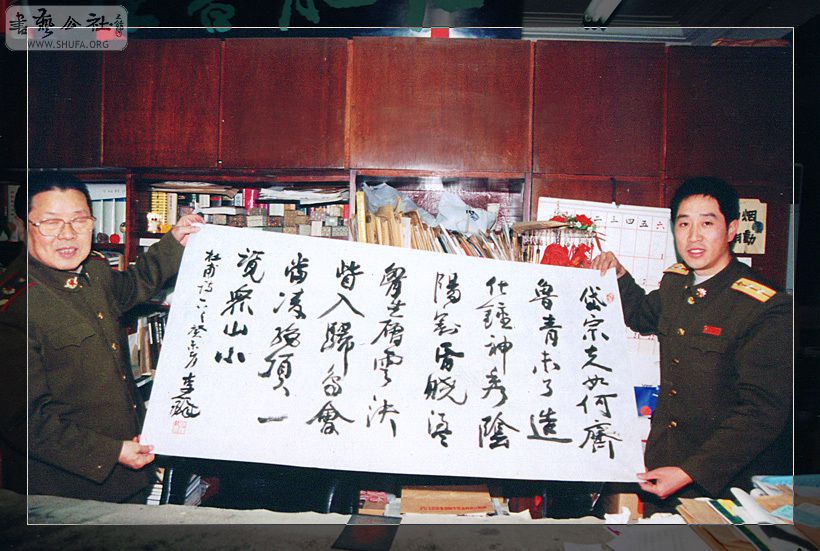 書藝公社
WWW.SHUFA.ORG
岱宗夫如何齊
魯青未了造
化鍾神秀陰
陽割昏曉盪
胷生層雲決
眥入歸鳥會
當凌絕頂一
覽衆山小
杜甫詩 癸未
李鐸
二 三 四 五 六
烟